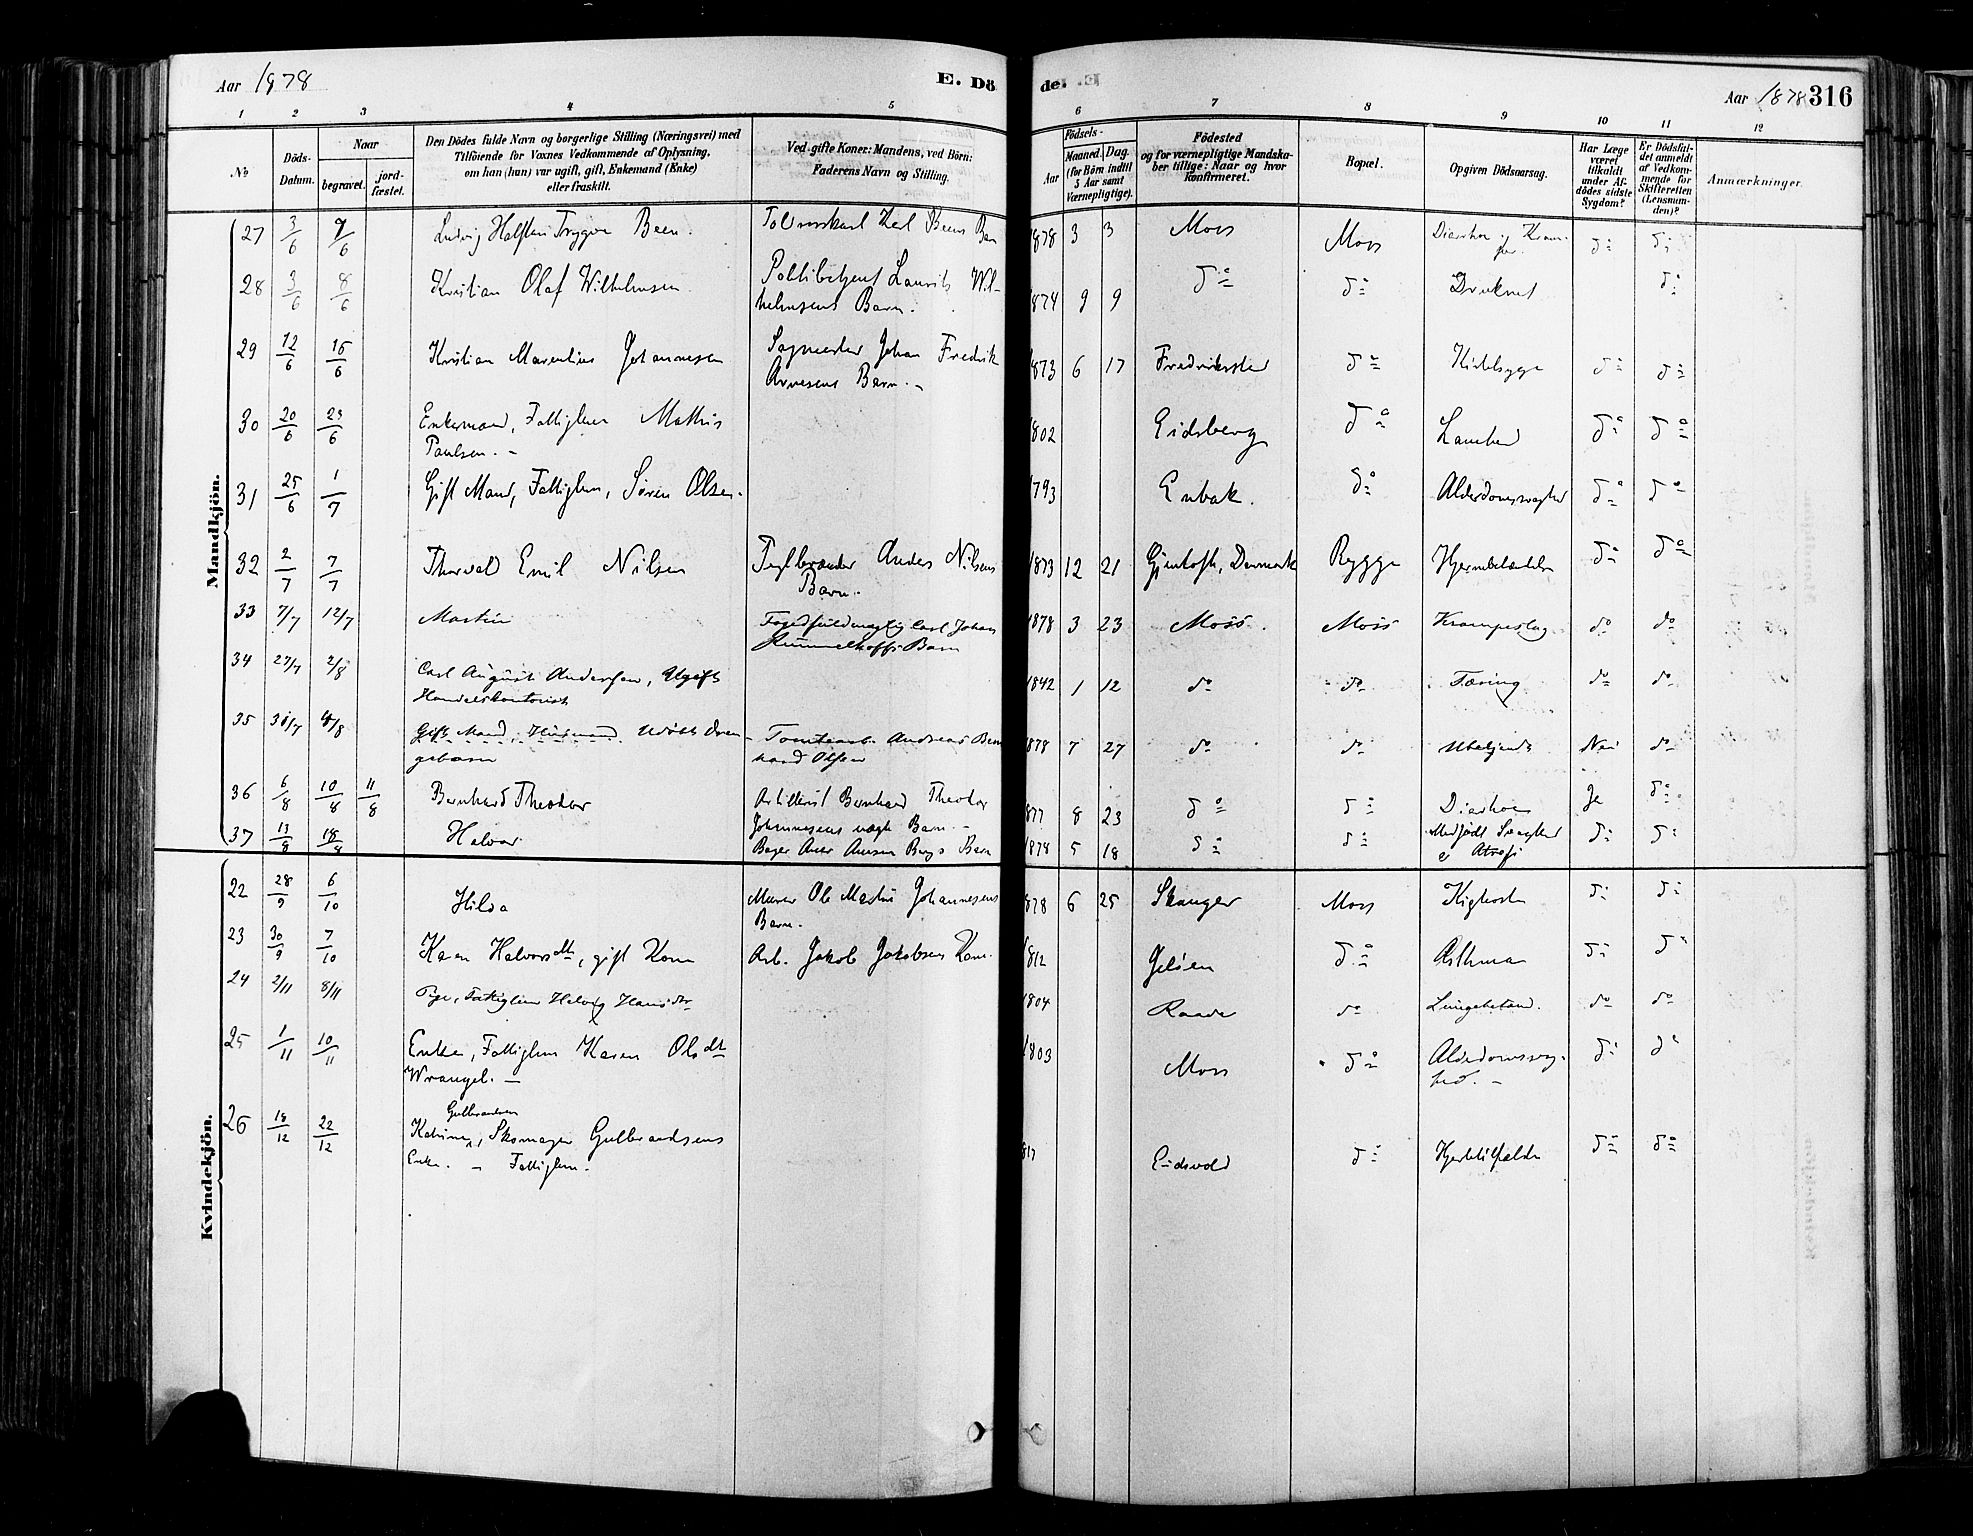 Aar 1878
E. Dö
de. E.
Aar 1878 316
1 2 3 4 5 6 7 8 9 10 11 12
№
Döds-Datum.
Naar
begravet.
jord-fæstet.
Den Dödes fulde Navn og borgerlige Stilling (Næringsvei) med
Tilföiende for Voxnes Vedkommende af Oplysning,
om han (hun) var ugift, gift, Enkemand (Enke)
eller fraskilt.
Ved gifte Koner: Mandens, ved Börn:
Faderens Navn og Stilling.
Födsels-
Aar
Maaned. Dag.
(for Börn indtil
5 Aar samt
Værnepligtige).
Födested
og for værnepligtige Mandska-
ber tillige: Naar og hvor
konfirmeret.
Bopæl.
Opgiven Dödsaarsag.
Har Læge
været
tilkaldt
under Af-
dödes sidste
Sygdom?
Er Dödsfal-
det anmeldt
af Vedkom-
mende for
Skifteretten
(Lensman-
den)?
Anmærkninger.
Mandkjön.
27 3/6 7/6 Ludvig Halfdan Trygve Been. Karl Beens Barn 1878 3 3 Moss Moss Diarrhoe do do
28 3/6 8/6 Kristian Olaf Wilhelmsen Politibetjent Laurits Wil-
helmsens Barn. 1874 9 9 do do Druknet do
29 12/6 16/6 Kristian Marentius Johannesen Johan Fredrik
Arnesens Barn. 1873 6 17 Fredrikstad do do do
30 20/6 24/6 Enkemand, Fattiglem Mathis
Paulsen. 1802 Eidsberg do Lamhed do do
31 25/6 1/7 Gift Mand, Fattiglem, Søren Olsen. 1793 Enebak. do Alderdomssvaghed do do
32 2/7 7/7 Thorvald Emil Nilsen Teglbrænder Anders Nilsens
Barn. 1873 12 21 Gjentofte, Danmark Rygge Hjernebetændelse do do
33 7/7 12/7 Martin Fogedfuldmægtig Carl Johan
Hummelhoffs Barn 1878 3 23 Moss. Moss Krampeslag do do
34 27/7 2/8 Carl August Andersen, Ugift
Handelskontorist 1842 1 12 do do Tæring do do
35 /7 /8 Gift Mand, Huusmand Udøbt Dren-
gebarn Tomtearb. Andreas Bern
hard Olsen 1878 7 27 do do Ubekjendt Nei do
36 6/8 10/8 11/8 Bernhard Theodor Artillerist Bernhard Theodor
Johannesens uægte Barn. 1877 8 23 do do Diarhoe Ja do
37 13/8 18/8 Halvor Bager Arnesen Bergs Barn 1878 5 18 do do Medfødt Svaghed
& Atrofi do do
Kvindekjön.
22 28/9 6/10 Hilda Murer Ole Martin Johannesens
Barn. 1878 6 25 Skanger Moss Kighoste do do
23 30/9 7/10 Karen Halvorsdtr, gift Kone Arb. Jakob Jakobsens Kone. 1812 Jeløen do Asthma do do
24 2/11 8/11 Pige, Fattiglem Helvig Hansdtr 1804 Raade do Lungebetænd. do do
25 1/11 10/11 Enke, Fattiglem Karen Olsdtr
Wrangel. 1803 Moss do Alderdomssvag-
hed. do do
26 18/12 22/12 Gulbrandsen
Katrine, Skomager Gulbrandsens
Enke. Fattiglem. 1817 Eidsvold do Hjertetilfælde do do